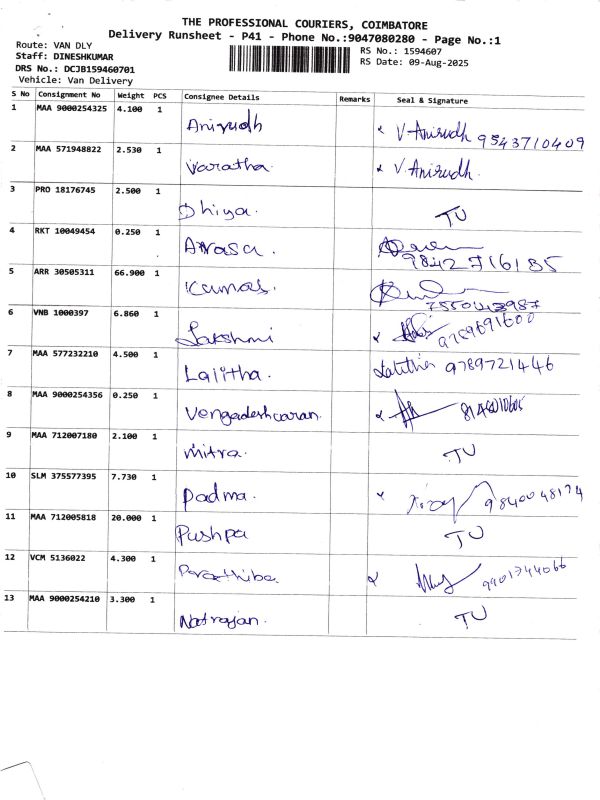 THE PROFESSIONAL COURIERS, COIMBATORE
Delivery Runsheet - P41 - Phone No.:9047080280 - Page No.:1
Route: VAN DLY
Staff: DINESHKUMAR
DRS No.: DCJB159460701
Vehicle: Van Delivery
RS No.: 1594607
RS Date: 09-Aug-2025
S No Consignment No Weight PCS Consignee Details Remarks Seal & Signature
1 MAA 9000254325 4.100 1 Anirudh V-Anirudh 9543710409
2 MAA 571948822 2.530 1 Varatha. V.Anirudh.
3 PRO 18176745 2.500 1 Dhiya. TU
4 RKT 10049454 0.250 1 Arasa. 9842716185
5 ARR 30505311 66.900 1 Kamas.
6 VNB 1000397 6.860 1 Lakshmi 9789691600
7 MAA 577232210 4.500 1 Lalitha. Lalitha 9789721446
8 MAA 9000254356 0.250 1 Vengadeshwaran.
9 MAA 712007180 2.100 1 Mitra. TU
10 SLM 375577395 7.730 1 Padma. 9840048174
11 MAA 712005818 20.000 1 Pushpa TU
12 VCM 5136022 4.300 1
13 MAA 9000254210 3.300 1 Natrajan. TU